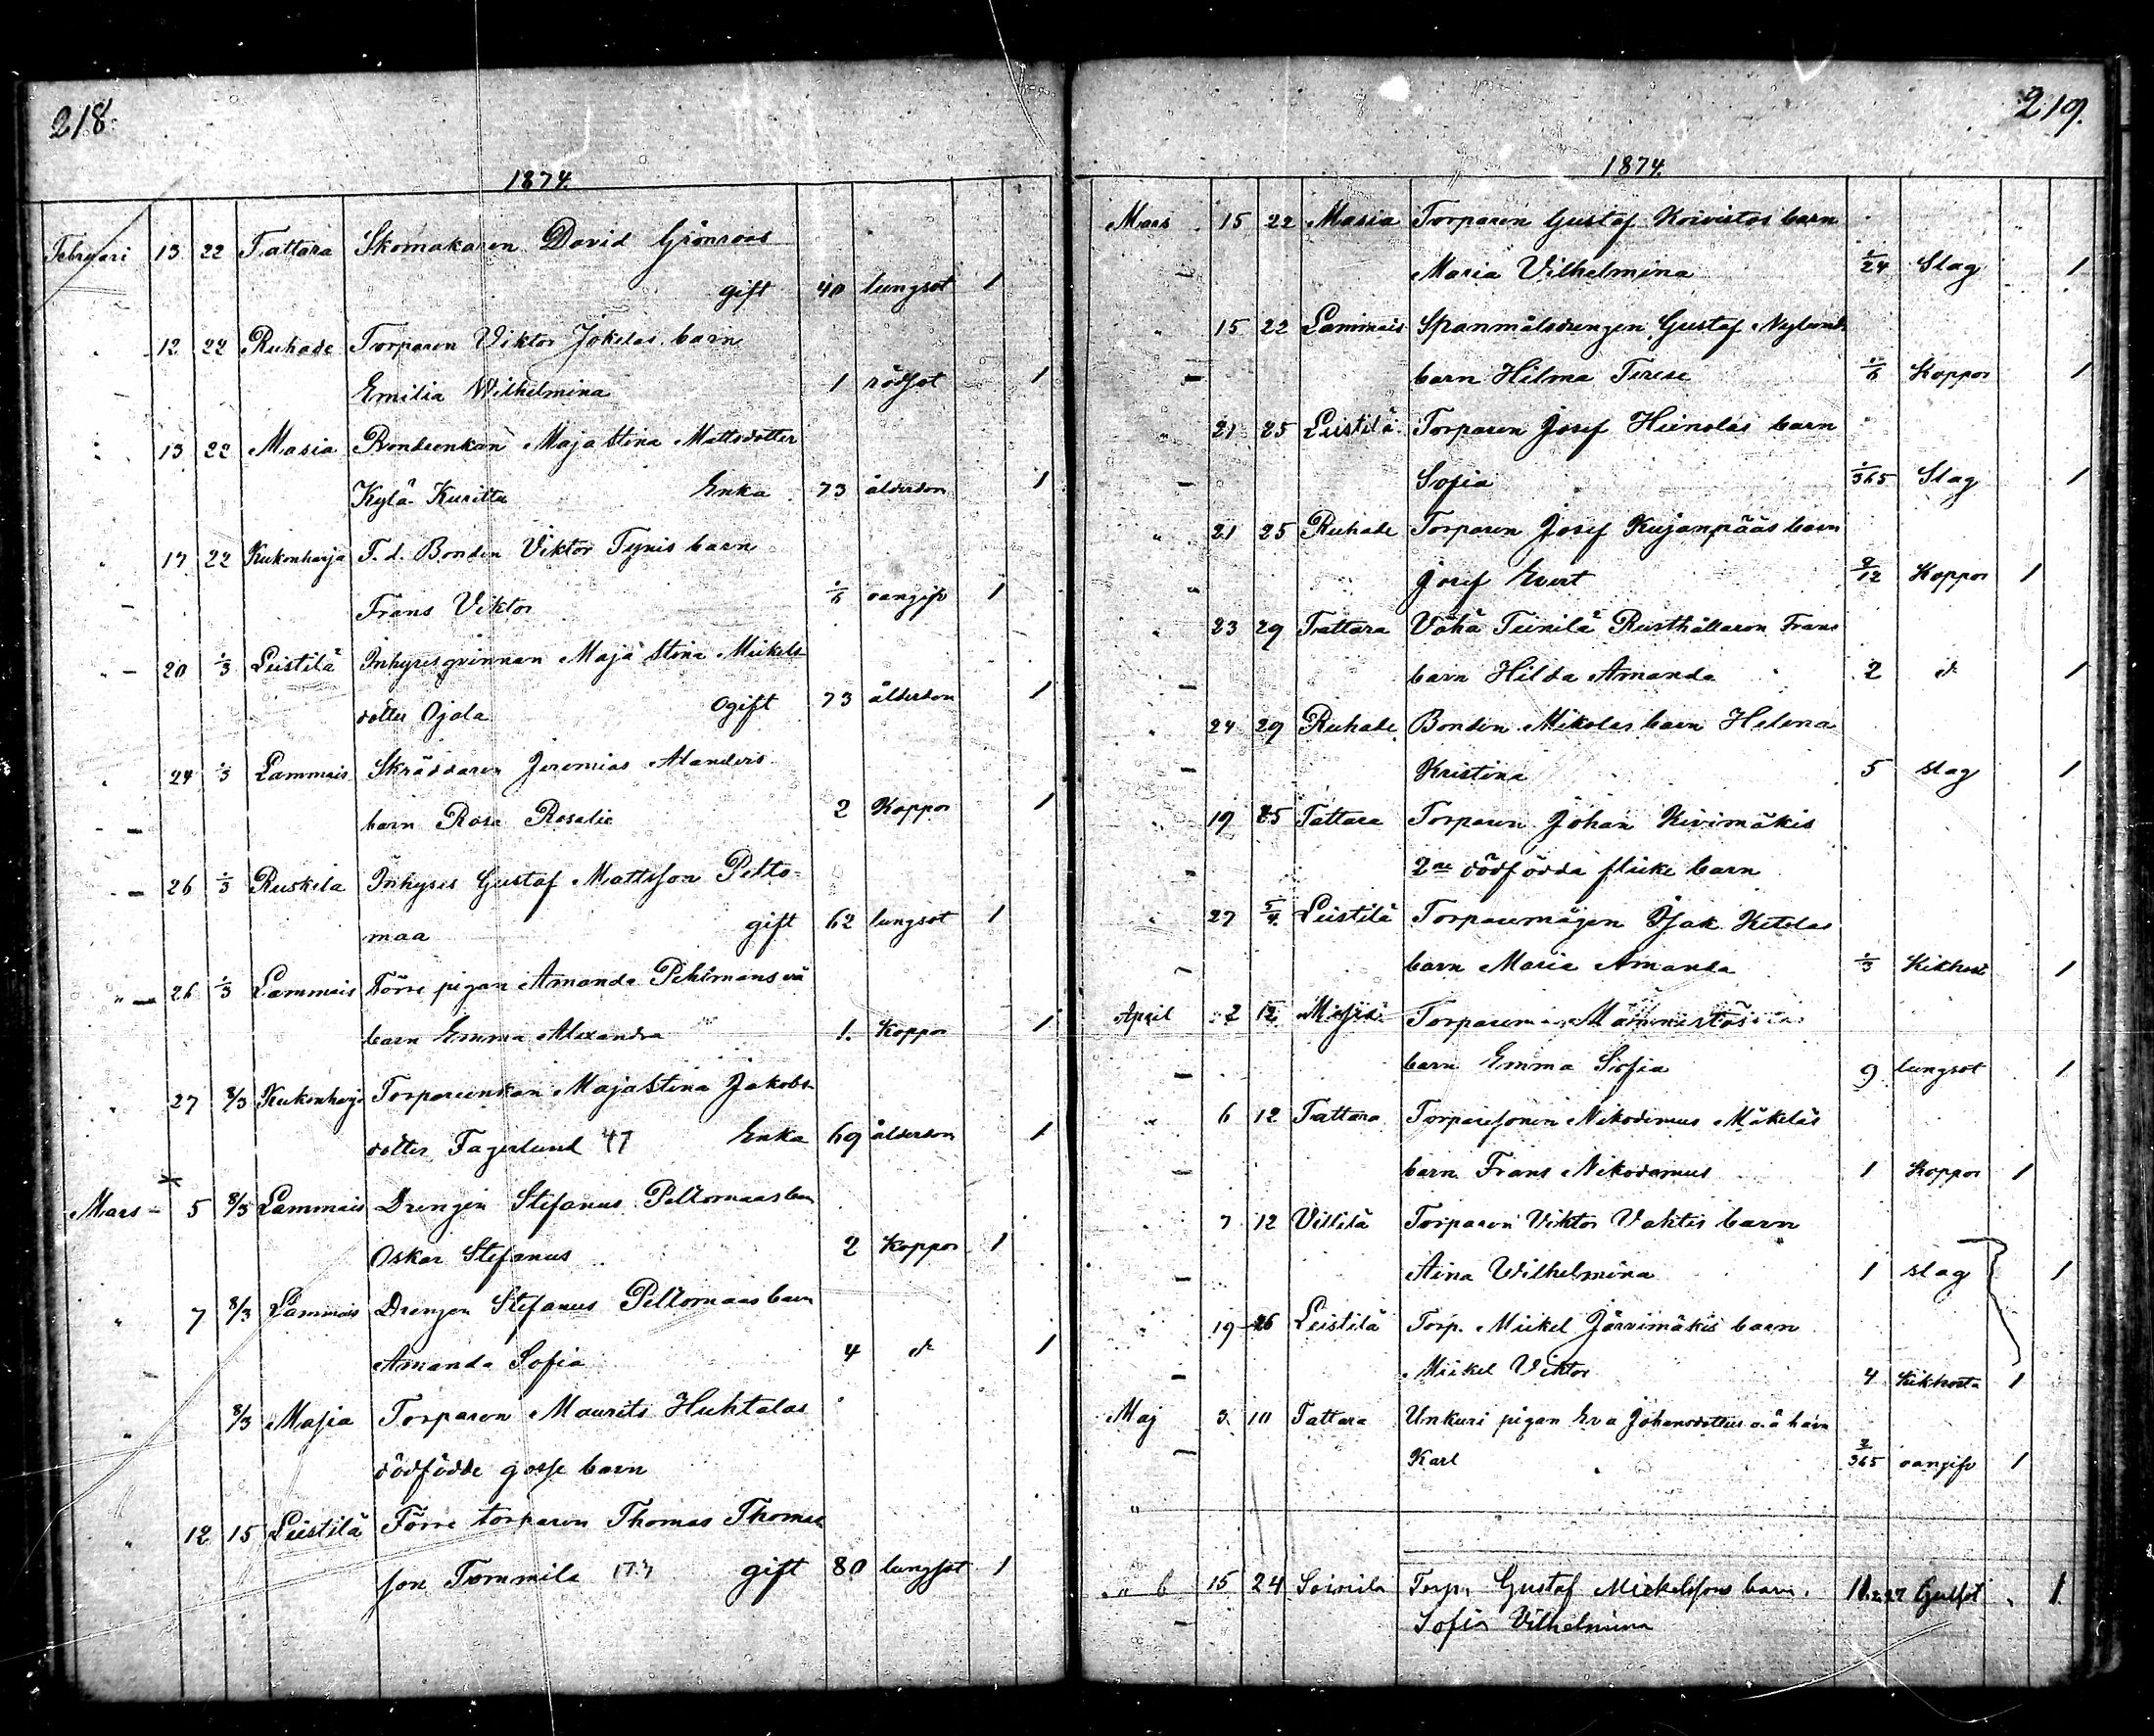 218.
1874.
Februari 13 22 Tattara Skomakaren David Grönroos
gift 40 lungsot 1
12 22 Ruhade Torparen Viktor Jokelas barn
Emilia Wilhelmina 1 rödsot 1
13 22 Masia Bondeenkan Maja Stina Mattsdotter
Kylä Kuritta Enka 73 ålderdom 1
17 22 Kukonharja F. d. Bonden Viktor Tynis barn
Frans Viktor 1/6 oangifv 1
" 20 1/3 Leistilä Inhyses qvinnan Maja Stina Mickels
dotter Ojala Ogift 73 ålderdom 1
24 1/3 Lammais Skräddaren Jeremias Alanders
barn Rosa Rosalie 2 Koppor 1
26 1/3 Ruskila Inhyses Gustaf Mattsson Pelto-
maa gift 62 lungsot 1
" 26 1/3 Lammais Förre pigan Amanda Pehlmans oä
barn Emma Alexandra 1. Koppor 1
27 8/3 Kukonharja Torpareenkan Maja Stina Jakobs
dotter Fagerlund 47 Enka 69 ålderdom 1
Mars 5 8/3 Lammais Drengen Stefanus Peltomaas barn
Oskar Stefanus 2 Koppor 1
" 7 8/3 Lammais Drengen Stefanus Peltomaas barn
Amanda Sofia 4 d:o 1
" 8/3 Masia Torparen Maurits Huhtalas
dödfödde gosse barn
" 12 15 Leistilä Förre torparen Thomas Thomas
son Tommila gift 80 lungsot 1
219.
1874.
Mars 15 22 Masia Torparen Gustaf Koivistos barn
Maria Vilhelmina 1/24 Slag 1
15 22 Lammais Spanmålsdrengen Gustaf Nylunds
barn Hilma Terese 1/6 Koppor 1
" 21 25 Leistilä Torparen Josef Heinolas barn
Sofia 1/365 Slag 1
" 21 25 Ruhade Torparen Josef Kujanpääs barn
Josef Evert 9/12 Koppor 1
" 23 29 Tattara Vähä Teinilä Rusthållaren Frans
barn Hilda Amanda 2 d:o 1
24 29 Ruhade Bonden Mikolas barn Helena
Kristina 5 slag 1
19 25 Tattara Torparen Johan Kivimäkis
2ne dödfödda flicke barn
27 5/4 Leistilä Torparemågen Isak Ketolas
barn Maria Amanda 1/3 Kikhosta 1
April 2 12 Torparen Männistös
barn Emma Sofia 9 lungsot 1
" 6 12 Tattara Torparesonen Nikodemus Mäkeläs
barn Frans Nikodemus 1 Koppor 1
7 12 Villilä Torparen Viktor Vahtis barn
Aina Wilhelmina 1 slag 1
19 26 Leistilä Torp. Mickel Järvimäkis barn
Mickel Viktor 4 Kikhosta 1
Maj 3 10 Tattara Unkuri pigan Eva Johansdotters o.ä barn
Karl 2/365 oangifv 1
"
" 15 24 Soinila Torp. Gustaf Mickelssons barn.
Sofia Vilhelmina 11.2.27 Gulsot 1